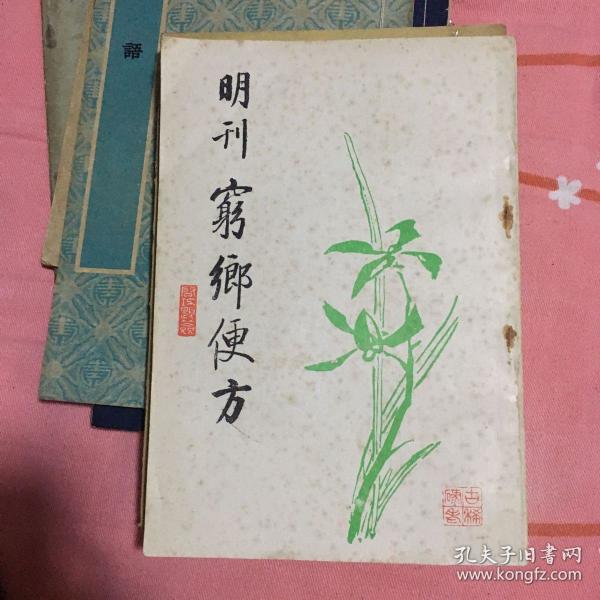 語
明刊窮鄉便方
孔夫子旧书网
www.kongfz.com